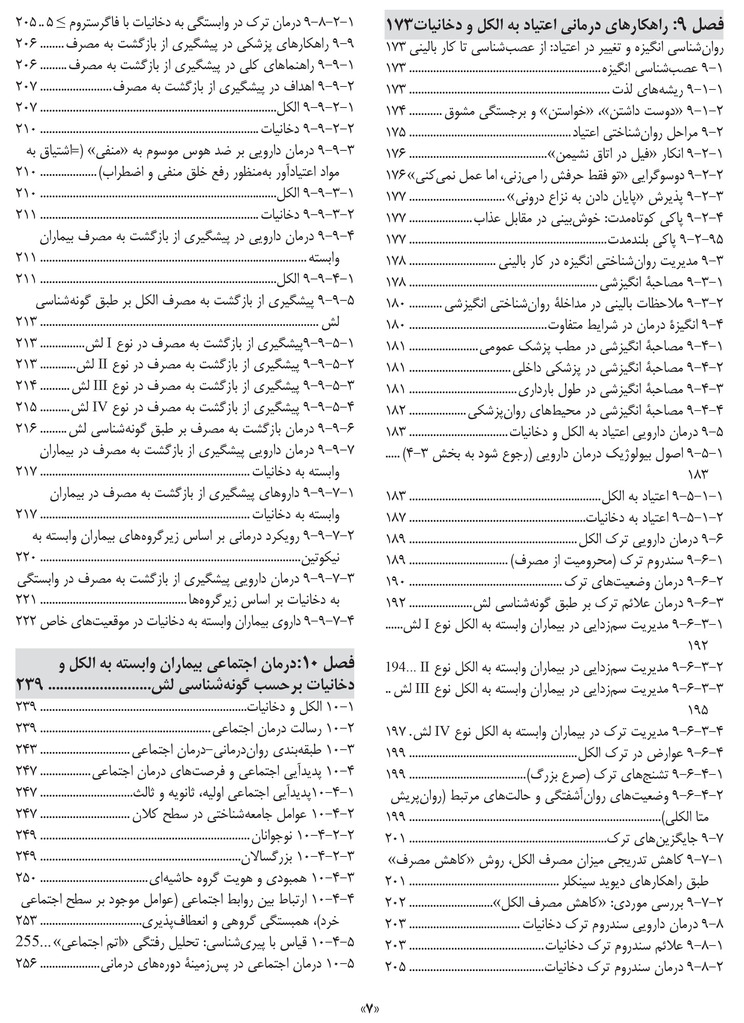 فصل ۹: راهکارهای درمانی اعتیاد به الکل و دخانیات۱۷۳
روان‌شناسی انگیزه و تغییر در اعتیاد: از عصب‌شناسی تا کار بالینی ۱۷۳
۹-۱ عصب‌شناسی انگیزه ۱۷۳
۹-۱-۱ ریشه‌های لذت ۱۷۳
۹-۱-۲ «دوست داشتن»، «خواستن» و برجستگی مشوق ۱۷۴
۹-۲ مراحل روان‌شناختی اعتیاد ۱۷۵
۹-۲-۱ انکار «فیل در اتاق نشیمن» ۱۷۶
۹-۲-۲ دوسوگرایی «تو فقط حرفش را می‌زنی، اما عمل نمی‌کنی» ۱۷۶
۹-۲-۳ پذیرش «پایان دادن به نزاع درونی» ۱۷۷
۹-۲-۴ پاکی کوتاه‌مدت: خوش‌بینی در مقابل عذاب ۱۷۷
۹-۲-۹۵ پاکی بلندمدت ۱۷۷
۹-۳ مدیریت روان‌شناختی انگیزه در کار بالینی ۱۷۸
۹-۳-۱ مصاحبۀ انگیزشی ۱۷۸
۹-۳-۲ ملاحظات بالینی در مداخلۀ روان‌شناختی انگیزشی ۱۸۰
۹-۴ انگیزۀ درمان در شرایط متفاوت ۱۸۰
۹-۴-۱ مصاحبۀ انگیزشی در مطب پزشک عمومی ۱۸۱
۹-۴-۲ مصاحبۀ انگیزشی در پزشکی داخلی ۱۸۱
۹-۴-۳ مصاحبۀ انگیزشی در طول بارداری ۱۸۱
۹-۴-۴ مصاحبۀ انگیزشی در محیط‌های روان‌پزشکی ۱۸۲
۹-۵ درمان دارویی اعتیاد به الکل و دخانیات ۱۸۳
۹-۵-۱ اصول بیولوژیک درمان دارویی (رجوع شود به بخش ۳-۴) .....
۱۸۳
۹-۵-۱-۱ اعتیاد به الکل ۱۸۳
۹-۵-۱-۲ اعتیاد به دخانیات ۱۸۷
۹-۶ درمان دارویی ترک الکل ۱۸۹
۹-۶-۱ سندروم ترک (محرومیت از مصرف) ۱۸۹
۹-۶-۲ درمان وضعیت‌های ترک ۱۹۰
۹-۶-۳ درمان علائم ترک بر طبق گونه‌شناسی لش ۱۹۲
۹-۶-۳-۱ مدیریت سم‌زدایی در بیماران وابسته به الکل نوع I لش......
۱۹۲
۹-۶-۳-۲ مدیریت سم‌زدایی در بیماران وابسته به الکل نوع II ...194
۹-۶-۳-۳ مدیریت سم‌زدایی در بیماران وابسته به الکل نوع III لش ..
۱۹۵
۹-۶-۳-۴ مدیریت ترک در بیماران وابسته به الکل نوع IV لش. ۱۹۷
۹-۶-۴ عوارض در ترک الکل ۱۹۹
۹-۶-۴-۱ تشنج‌های ترک (صرع بزرگ) ۱۹۹
۹-۶-۴-۲ وضعیت‌های روان‌آشفتگی و حالت‌های مرتبط (روان‌پریش
متا الکلی) ۱۹۹
۹-۷ جایگزین‌های ترک ۲۰۱
۹-۷-۱ کاهش تدریجی میزان مصرف الکل، روش «کاهش مصرف»
طبق راهکارهای دیوید سینکلر ۲۰۱
۹-۷-۲ بررسی موردی: «کاهش مصرف الکل» ۲۰۲
۹-۸ درمان دارویی سندروم ترک دخانیات ۲۰۳
۹-۸-۱ علائم سندروم ترک دخانیات ۲۰۳
۹-۸-۲ درمان سندروم ترک دخانیات ۲۰۵
۹-۸-۲-۱ درمان ترک در وابستگی به دخانیات با فاگرستروم ≥ ۵ .. ۲۰۵
۹-۹ راهکارهای پزشکی در پیشگیری از بازگشت به مصرف ۲۰۶
۹-۹-۱ راهنماهای کلی در پیشگیری از بازگشت به مصرف ۲۰۶
۹-۹-۲ اهداف در پیشگیری از بازگشت به مصرف ۲۰۷
۹-۹-۲-۱ الکل ۲۰۷
۹-۹-۲-۲ دخانیات ۲۱۰
۹-۹-۳ درمان دارویی بر ضد هوس موسوم به «منفی» (=اشتیاق به
مواد اعتیادآور به‌منظور رفع خلق منفی و اضطراب) ۲۱۰
۹-۹-۳-۱ الکل ۲۱۰
۹-۹-۳-۲ دخانیات ۲۱۱
۹-۹-۴ درمان دارویی در پیشگیری از بازگشت به مصرف بیماران
وابسته ۲۱۱
۹-۹-۴-۱ الکل ۲۱۱
۹-۹-۵ پیشگیری از بازگشت به مصرف الکل بر طبق گونه‌شناسی
لش ۲۱۳
۹-۹-۵-۱پیشگیری از بازگشت به مصرف در نوع I لش ۲۱۳
۹-۹-۵-۲ پیشگیری از بازگشت به مصرف در نوع II لش ۲۱۳
۹-۹-۵-۳ پیشگیری از بازگشت به مصرف در نوع III لش ۲۱۴
۹-۹-۵-۴ پیشگیری از بازگشت به مصرف در نوع IV لش ۲۱۵
۹-۹-۶ درمان بازگشت به مصرف بر طبق گونه‌شناسی لش ۲۱۶
۹-۹-۷ درمان دارویی پیشگیری از بازگشت به مصرف در بیماران
وابسته به دخانیات ۲۱۷
۹-۹-۷-۱ داروهای پیشگیری از بازگشت به مصرف در بیماران
وابسته به دخانیات ۲۱۷
۹-۹-۷-۲ رویکرد درمانی بر اساس زیرگروه‌های بیماران وابسته به
نیکوتین ۲۲۰
۹-۹-۷-۳ درمان دارویی پیشگیری از بازگشت به مصرف در وابستگی
به دخانیات بر اساس زیرگروه‌ها ۲۲۱
۹-۹-۷-۴ داروی بیماران وابسته به دخانیات در موقعیت‌های خاص ۲۲۲
فصل ۱۰:درمان اجتماعی بیماران وابسته به الکل و
دخانیات برحسب گونه‌شناسی لش ۲۳۹
۱۰-۱ الکل و دخانیات ۲۳۹
۱۰-۲ رسالت درمان اجتماعی ۲۳۹
۱۰-۳ طبقه‌بندی روان‌درمانی-درمان اجتماعی ۲۴۳
۱۰-۴ پدیدآیی اجتماعی و فرصت‌های درمان اجتماعی ۲۴۷
۱۰-۴-۱پدیدآیی اجتماعی اولیه، ثانویه و ثالث ۲۴۷
۱۰-۴-۲ عوامل جامعه‌شناختی در سطح کلان ۲۴۷
۱۰-۴-۲-۲ نوجوانان ۲۴۹
۱۰-۴-۲-۳ بزرگسالان ۲۴۹
۱۰-۴-۳ همبودی و هویت گروه حاشیه‌ای ۲۵۰
۱۰-۴-۴ ارتباط بین روابط اجتماعی (عوامل موجود بر سطح اجتماعی
خرد)، همبستگی گروهی و انعطاف‌پذیری ۲۵۳
۱۰-۴-۵ قیاس با پیری‌شناسی: تحلیل رفتگی «اتم اجتماعی» ...255
۱۰-۵ درمان اجتماعی در پس‌زمینۀ دوره‌های درمانی ۲۵۶
«۷»